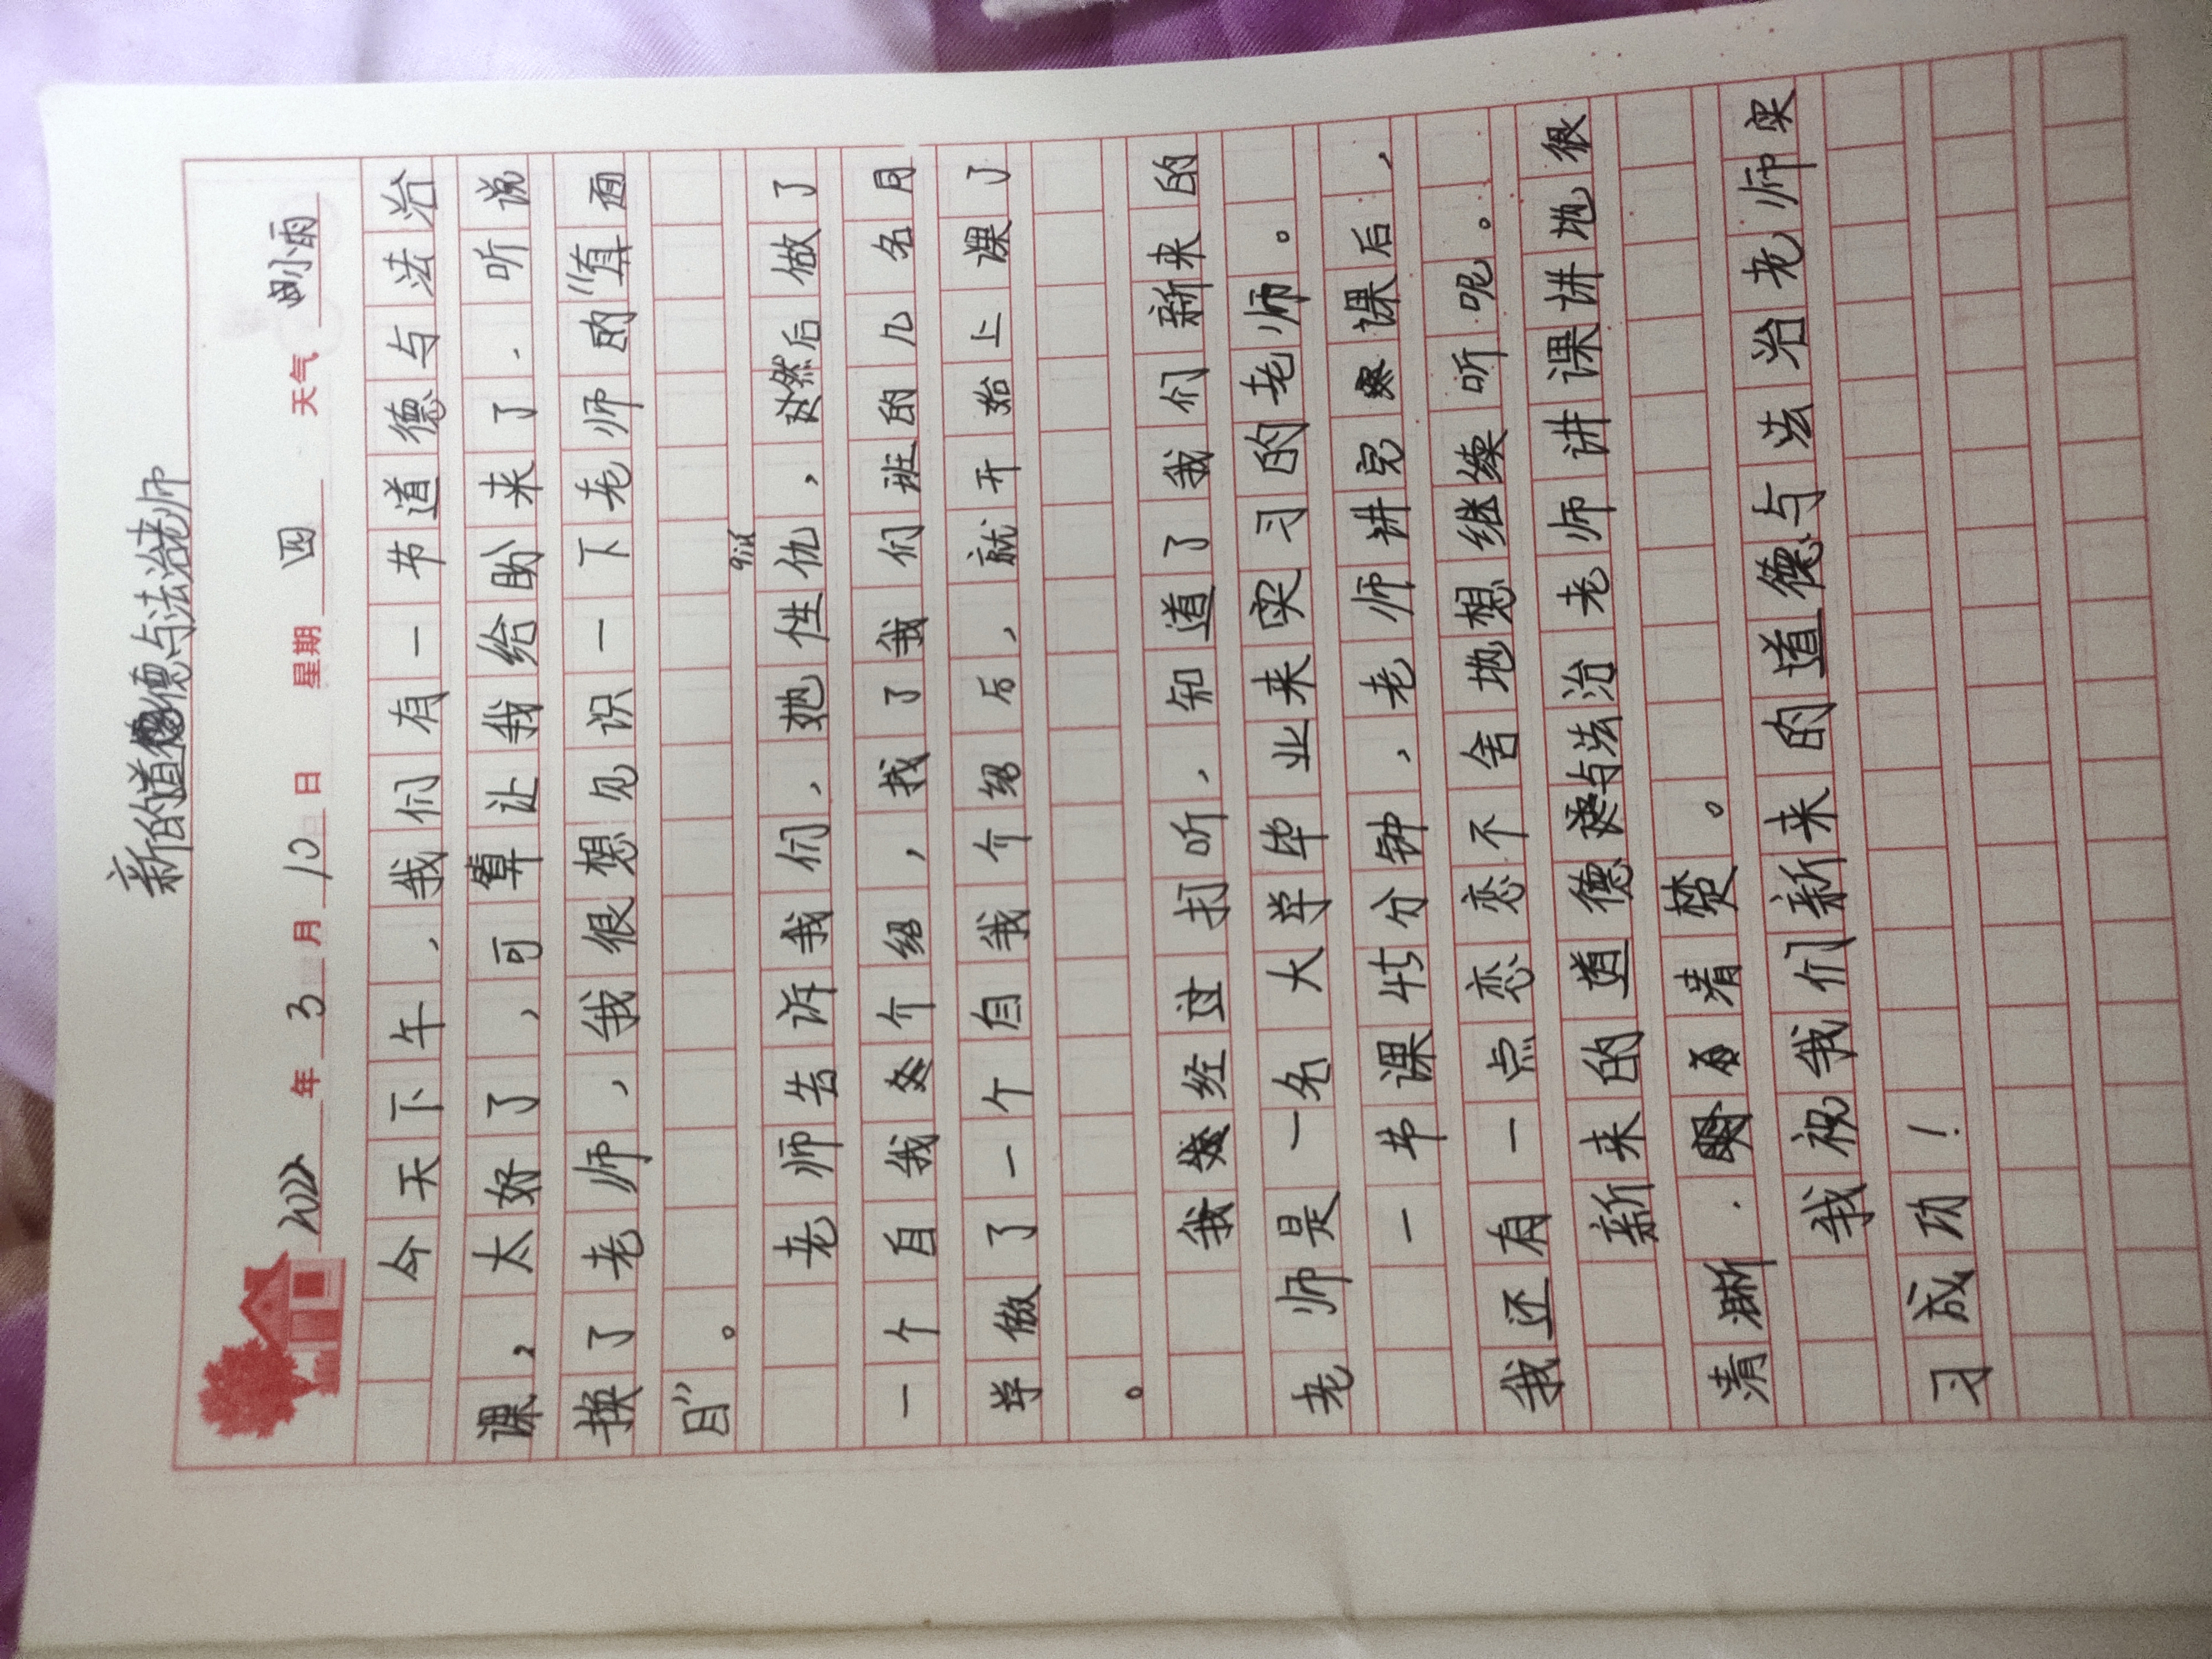 新的道德与法治老师
2022年3月10日 星期四 天气小雨
今天下午,我们有一节道德与法治
课,太好了,可算让我给盼来了,听说
换了老师,我很想见识一下老师的“真面
目”。
qiú
老师告诉我们,她性仇,然后做了
一个自我介绍,找了我们班的几名同
学做了一个自我介绍后,就开始上课了
。
我经过打听,知道了我们新来的
老师是一名大学毕业来实习的老师。
一节课45分钟,老师讲完课后,
我还有一点恋恋不舍地想继续听呢。
新来的道德与法治老师讲课讲地很
清晰.清楚。
我祝我们新来的道德与法治老师实
习成功!